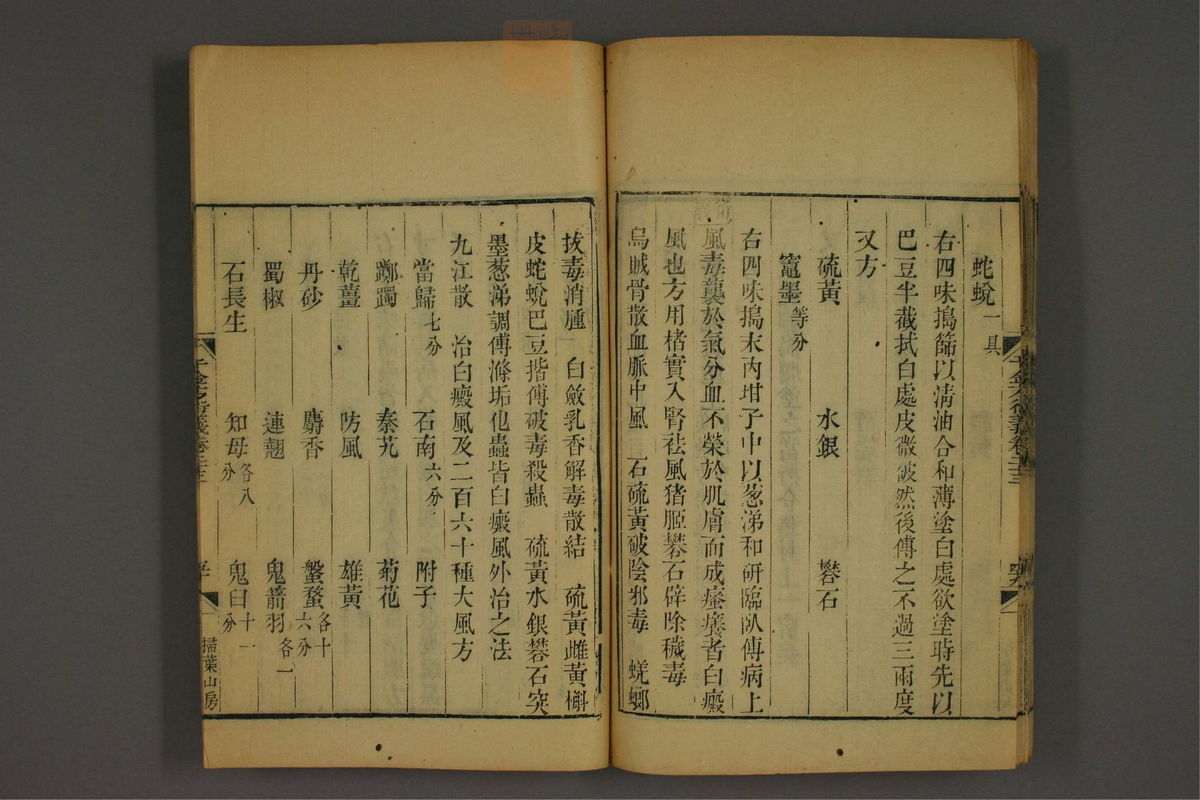 蛇蛻一具
右四味搗篩以淸油合和薄塗白處欲塗時先以
巴豆半截拭白處皮微皴然後傅之不過三兩度
又方
硫黃 水銀 礬石
竈墨等分
右四味搗末內坩子中以葱涕和研臨臥傅病上
風毒襲於氣分血不榮於肌膚而成瘙癢者白癜
風也方用楮實入腎祛風猪脂礬石辟除穢毒
烏賊骨散血脈中風 石硫黃破陰邪毒 蜣蜋
拔毒消腫 白斂乳香解毒散結 硫黃雌黃槲
皮蛇蛻巴豆揩傅破毒殺蟲 硫黃水銀礬石突
墨葱涕調傅滌垢化蟲皆白癜風外治之法
九江散 治白癜風及二百六十種大風方
當歸七分 石南六分 附子
躑躅 秦艽 菊花
乾薑 防風 雄黃
丹砂 麝香 斑蝥各十六分
蜀椒 連翹 鬼箭羽
石長生 知母各八分 鬼臼各一十一分
千金方衍義卷二十三
掃葉山房